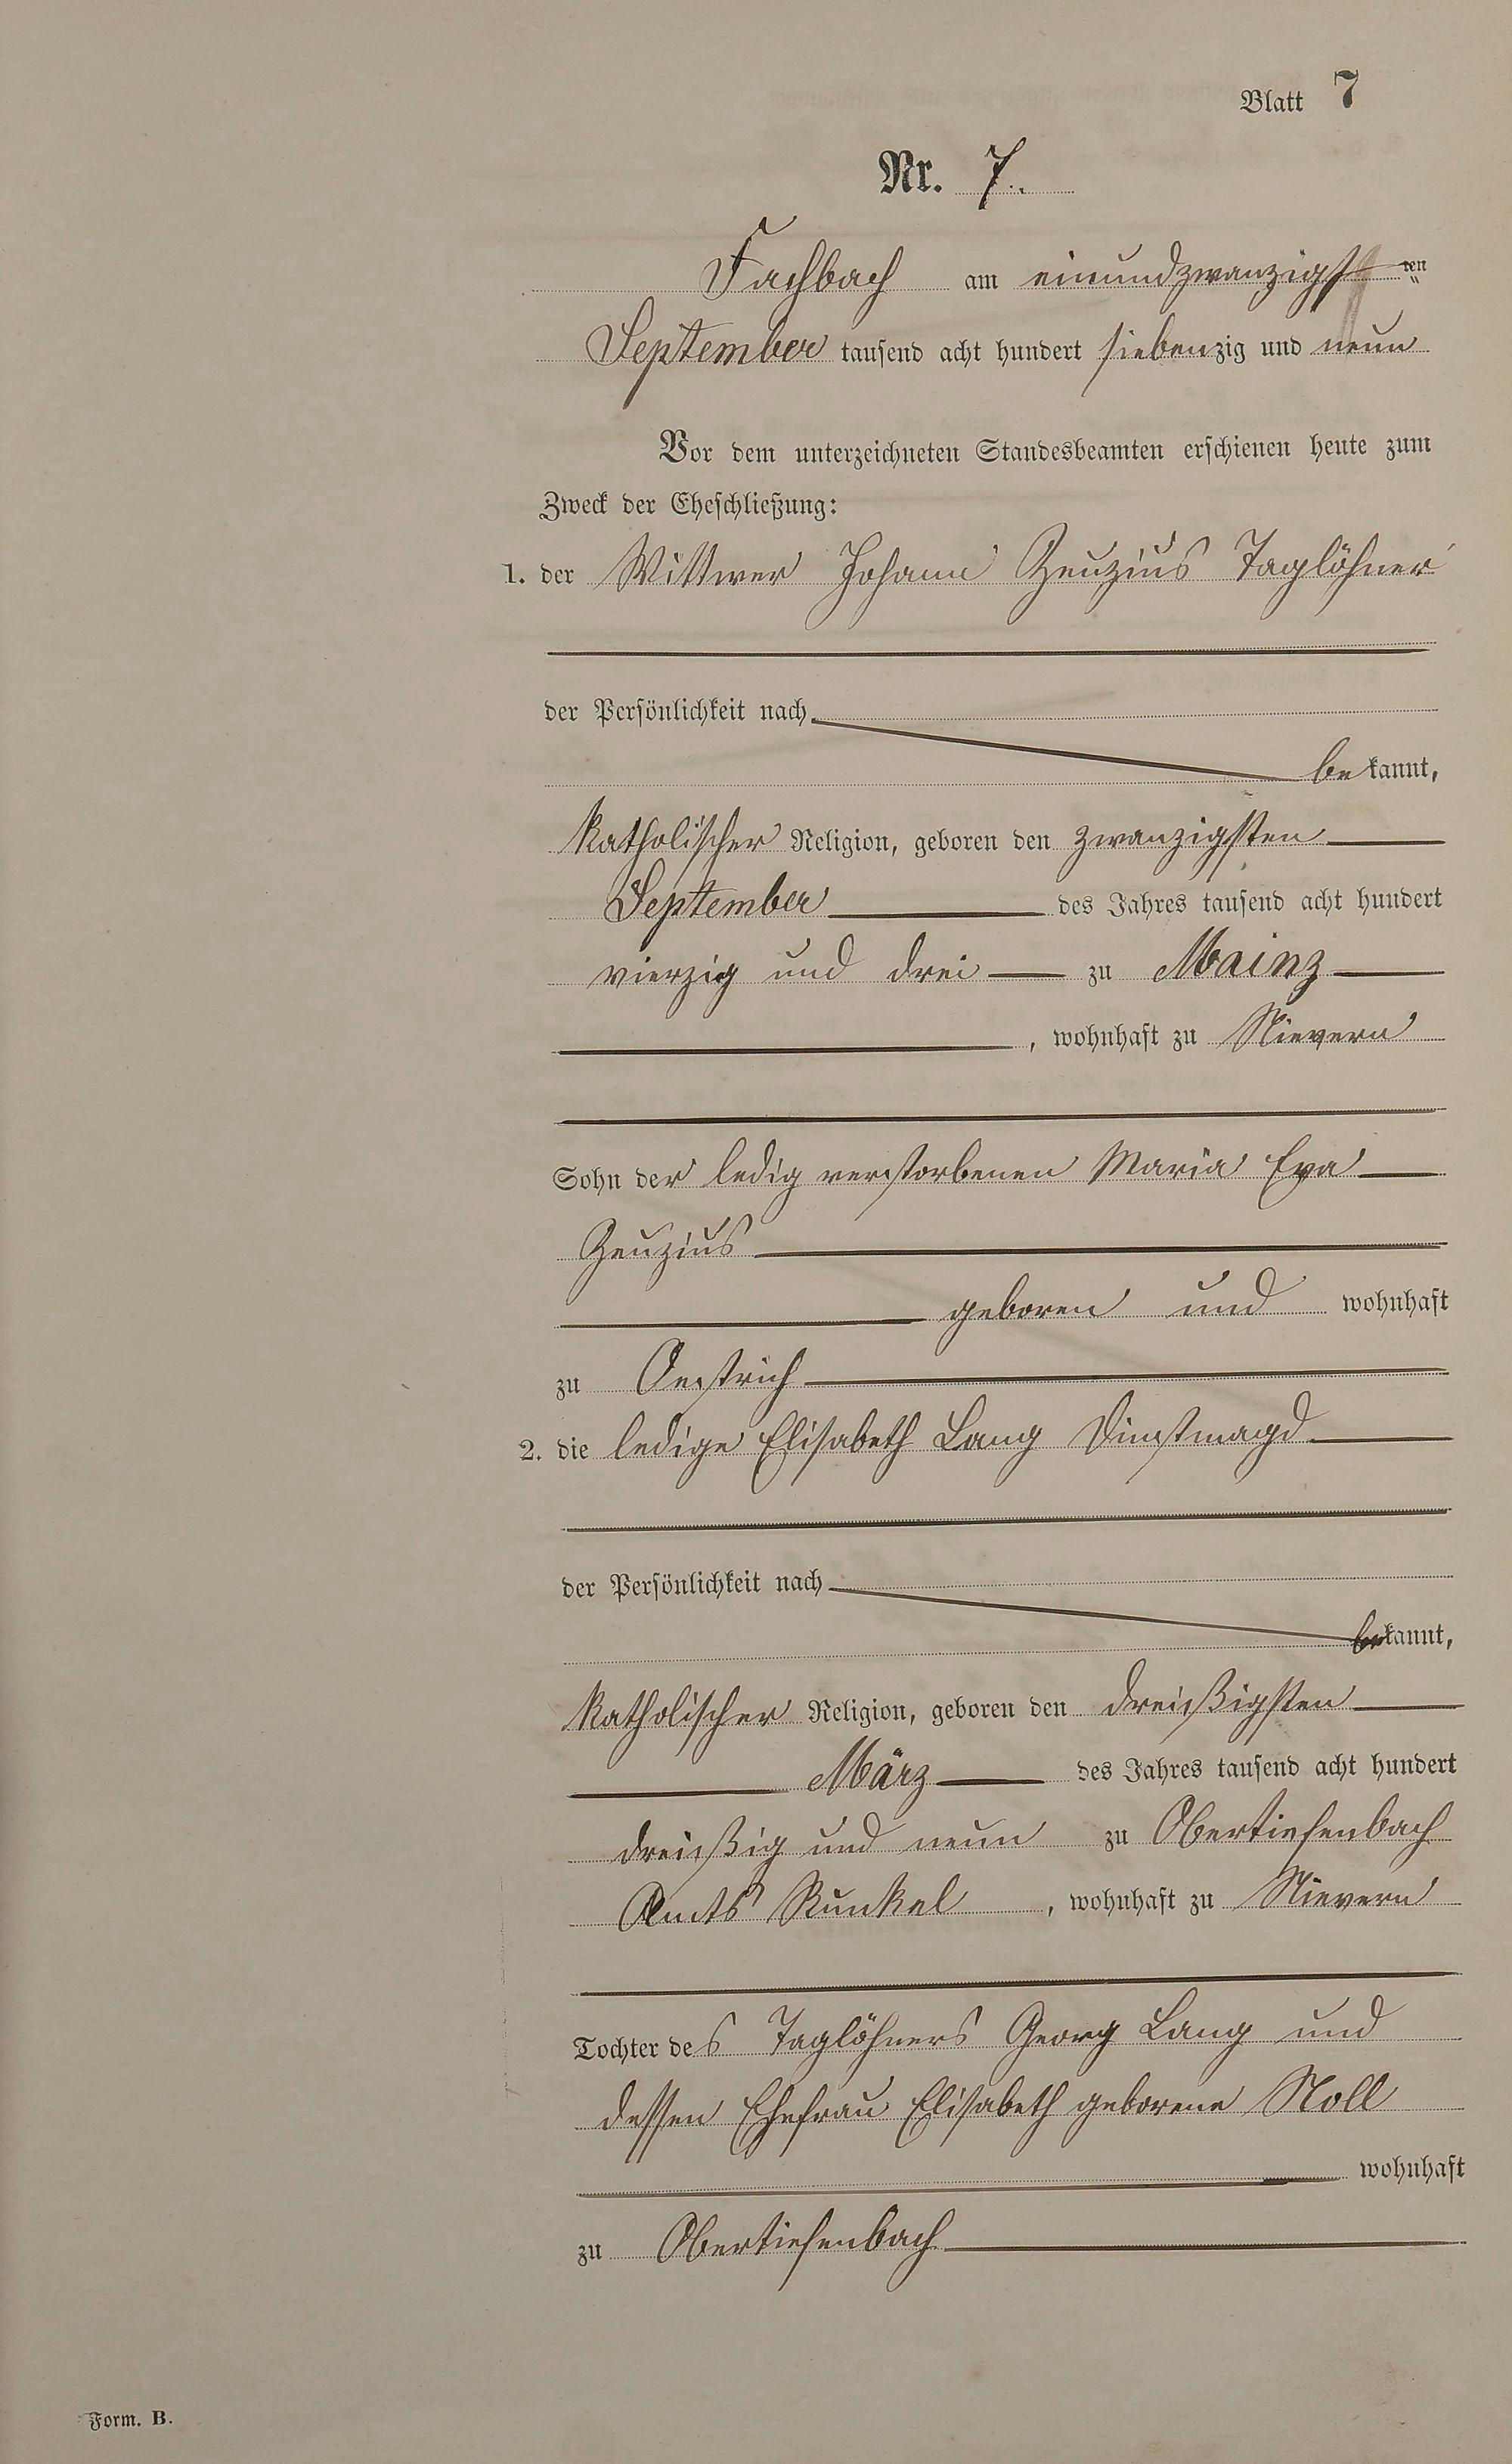 Blatt 7
Nr. 7.
Fachbach am einundzwanzigst ten
September tausend acht hundert siebenzig und neun
Vor dem unterzeichneten Standesbeamten erschienen heute zum
Zweck der Eheschließung:
1. der Wittwer Johann Genzius Taglöhner
der Persönlichkeit nach
bekannt,
katholischer Religion, geboren den zwanzigsten
September des Jahres tausend acht hundert
vierzig und drei zu Mainz
, wohnhaft zu Nievern
Sohn der ledig verstorbenen Maria Eva
Genzius
geboren und wohnhaft
zu Oestrich
2. die ledige Elisabeth Lang Dinstmagd
der Persönlichkeit nach
bekannt,
katholischer Religion, geboren den dreißigsten
März des Jahres tausend acht hundert
dreißig und neun zu Obertiefenbach
Amts Runkel, wohnhaft zu Nievern
Tochter des Taglöhners Georg Lang und
dessen Ehefrau Elisabeth geborene Noll
wohnhaft
zu Obertiefenbach
Form. B.